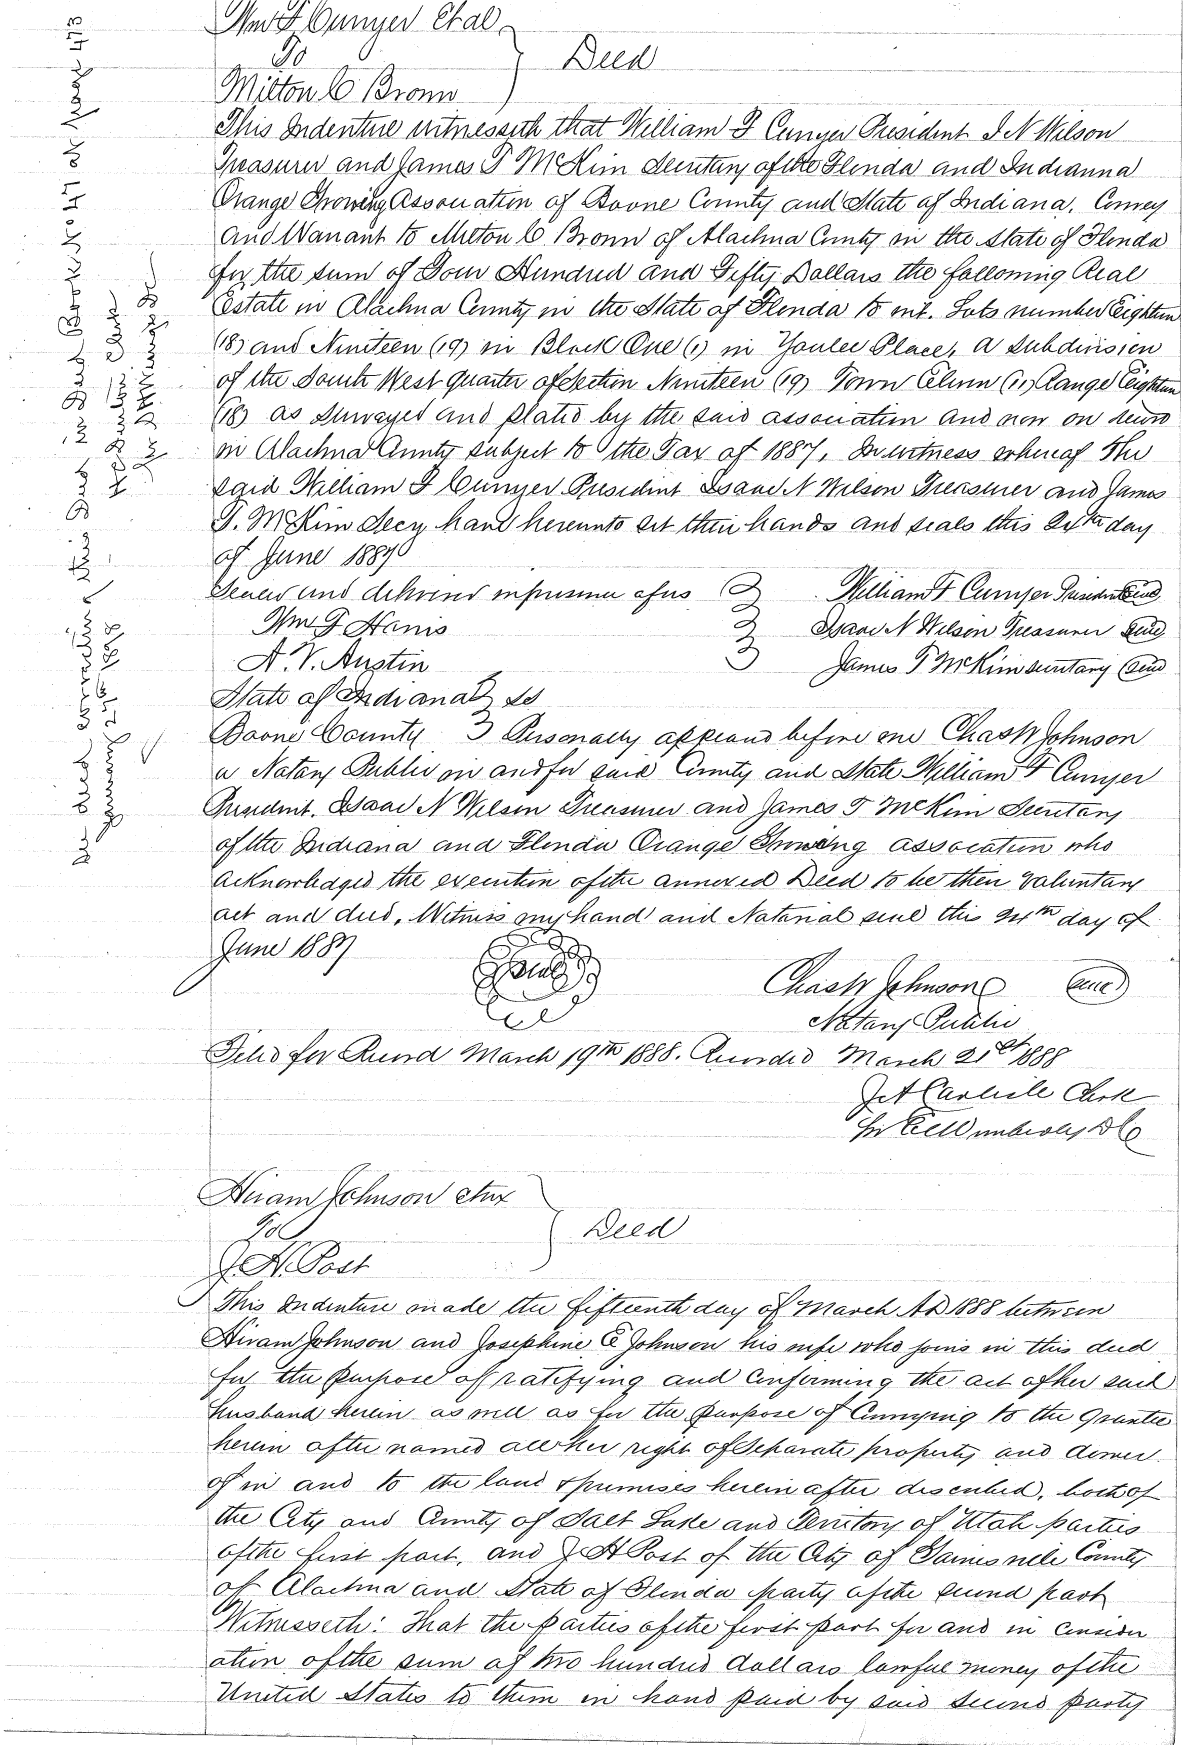 Wm F. Cunyer Etal
To
Deed
Milton C Brown
This Indenture witnesseth that William F Cunyer President I N Wilson
Treasurer and James T McKim Secretary of the Florida and Indianna
Orange Growing Association of Boone County and State of Indiana. Convey
and Warrant to Milton C Brown of Alachua County in the State of Florida
for the sum of Four Hundred and Fifty Dollars the following Real
Estate in Alachua County in the State of Florida to wit. Lots number Eighteen
(18) and Nineteen (19) in Block One (1) in Youlee Place, a subdivision
of the South West quarter of Section Nineteen (19) Town Eleven (11) Range Eighteen
(18) as Surveyed and plated by the said association and now on record
in Alachua County subject to the Tax of 1887, In witness whereof The
said William F Cunyer President Isaac N Wilson Treasurer and James
T. McKim Secy have hereunto set their hands and seals this 24th day
of June 1887
Sealed and delivered in presence of us William F Cunyer President Seal
Wm G Harris Isaac N Wilson Treasurer Seal
A. V. Austin James T McKim secretary Seal
State of Indiana ss
Boone County Personally appeared before me Chas W Johnson
a Notary Public in and for said County and State William F Cunyer
President. Isaac N Wilson Treasurer and James T McKim Secretary
of the Indiana and Florida Orange Growing association who
acknowledged the execution of the annexed Deed to be their Voluntary
act and deed. Witness my hand and Notarial seal this 24th day of
June 1887
Seal
Chas W Johnson Seal
Notary Public
Filed for Record March 19th 1888. Recorded March 21st 1888
J A Carlisle Clerk
D C
Hiram Johnson etux
To
Deed
J. H. Post
This Indenture made the fifteenth day of March AD 1888 between
Hiram Johnson and Josephine E Johnson his wife who joins in this deed
for the purpose of ratifying and confirming the act of her said
husband herein as well as for the purpose of Conveying to the Grantee
herein after named all her right of Separate property and dower
of in and to the land & premises herein after described, both of
the City and County of Salt Lake and Territory of Utah parties
of the first part, and J. H Post of the City of Gainesville County
of Alachua and State of Florida party of the second part
Witnesseth: That the parties of the first part for and in consider
ation of the sum of two hundred dollars lawful money of the
United States to them in hand paid by said second party